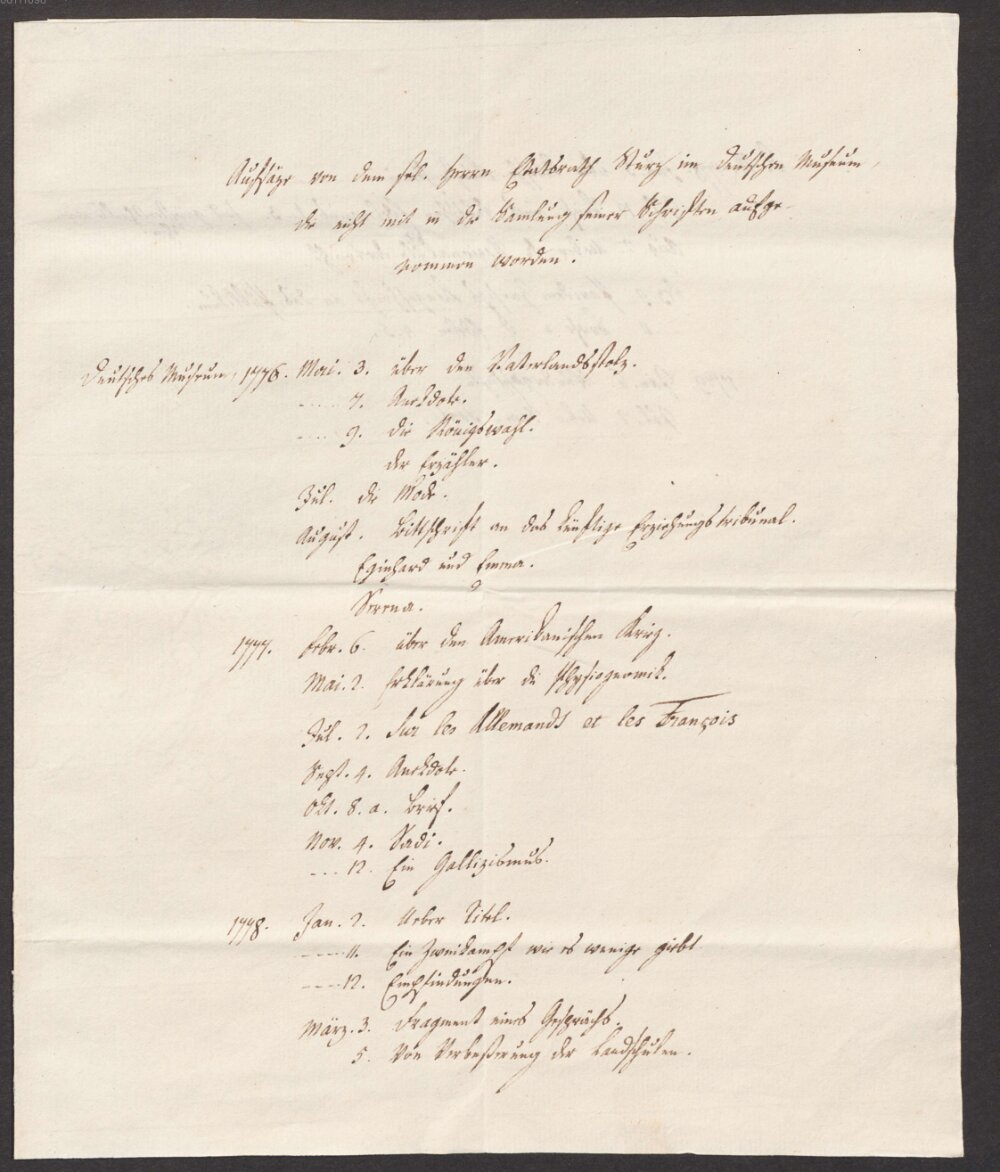 Aufsäze von dem sel. Herrn Etatsrath Sturz im deutschen Museum,
die nicht mit in die Samlung seiner Schriften aufge-
nommen worden.
Deutsches Museum, 1776. Mai. 3. über den Vaterlandsstolz.
---- 7. Anekdote.
---- 9. die Königswahl.
der Erzähler.
Jul. die Mode.
August. Bittschrift an das künftige Erziehungstribunal.
Eginhard und Emma.
Serena.
1777. Febr. 6. über den Amerikanischen Krieg.
Mai. 2. Erklärung über die Physiognomik.
Jul. 2. Sur les Allemands et les François
Sept. 4. Anekdote.
Okt. 8. a. Brief.
Nov. 4. Sadi.
---- 12. Ein Gallizismus.
1778. Jan. 2. Ueber Titel.
---- 11. Ein Zweikampf wie es wenige giebt
---- 12. Empfindungen.
März. 3. Fragment eines Gesprächs.
5. Von Verbeßerung der Landschulen.